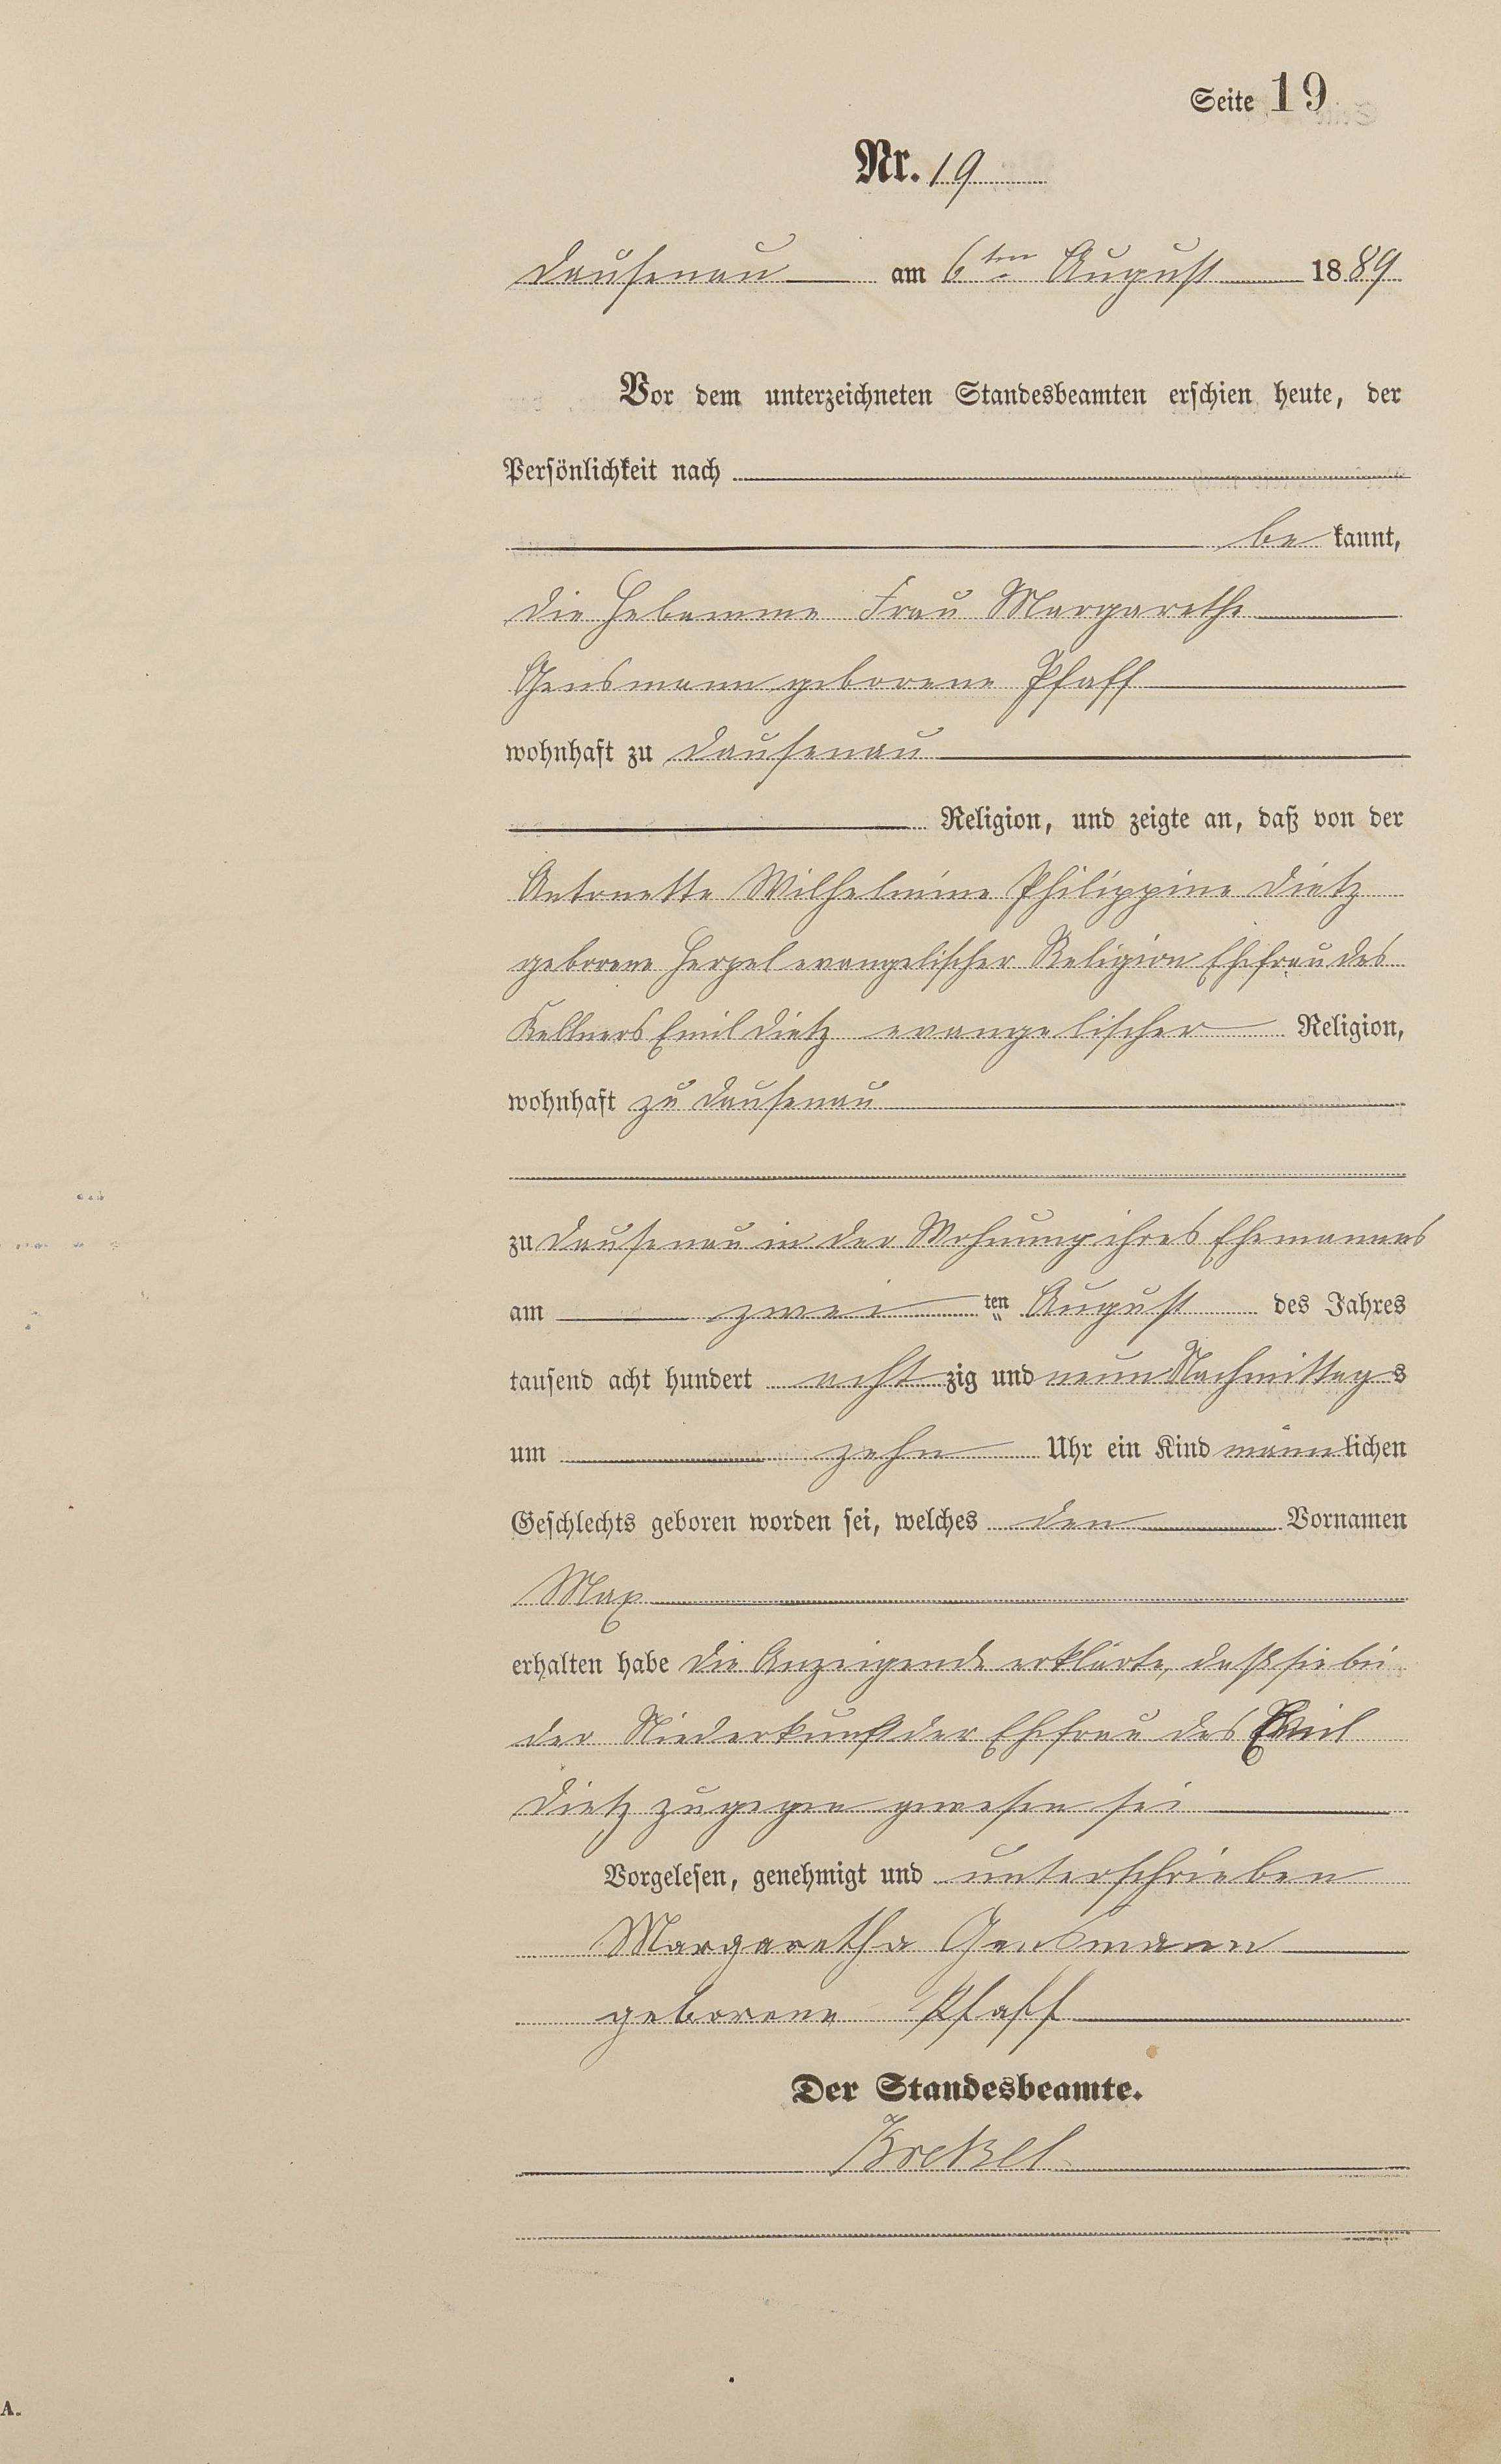 Seite 19
Nr. 19
Dausenau am 6ten August 1889
Vor dem unterzeichneten Standesbeamten erschien heute, der
Persönlichkeit nach
be kannt,
die Hebamme Frau Margarethe
Gensmann geborene Pfaff
wohnhaft zu Dausenau
Religion, und zeigte an, daß von der
Antonette Wilhelmine Philippine Dietz
geborene Herpel evangelischer Religion Ehefrau des
Kellners Emil Dietz evangelischer Religion,
wohnhaft zu Dausenau
zu Dausenau in der Wohnung ihres Ehemannes
am zwei ten August des Jahres
tausend acht hundert acht zig und neun Nachmittags
um zehn Uhr ein Kind männlichen
Geschlechts geboren worden sei, welches den Vornamen
Max
erhalten habe die Anzeigende erklärte, daß sie bei
der Niederkunft der Ehefrau des Emil
Dietz zugegen gewesen sei
Vorgelesen, genehmigt und unterschrieben
Margaretha Gensmann
geborene Pfaff
Der Standesbeamte.
A.